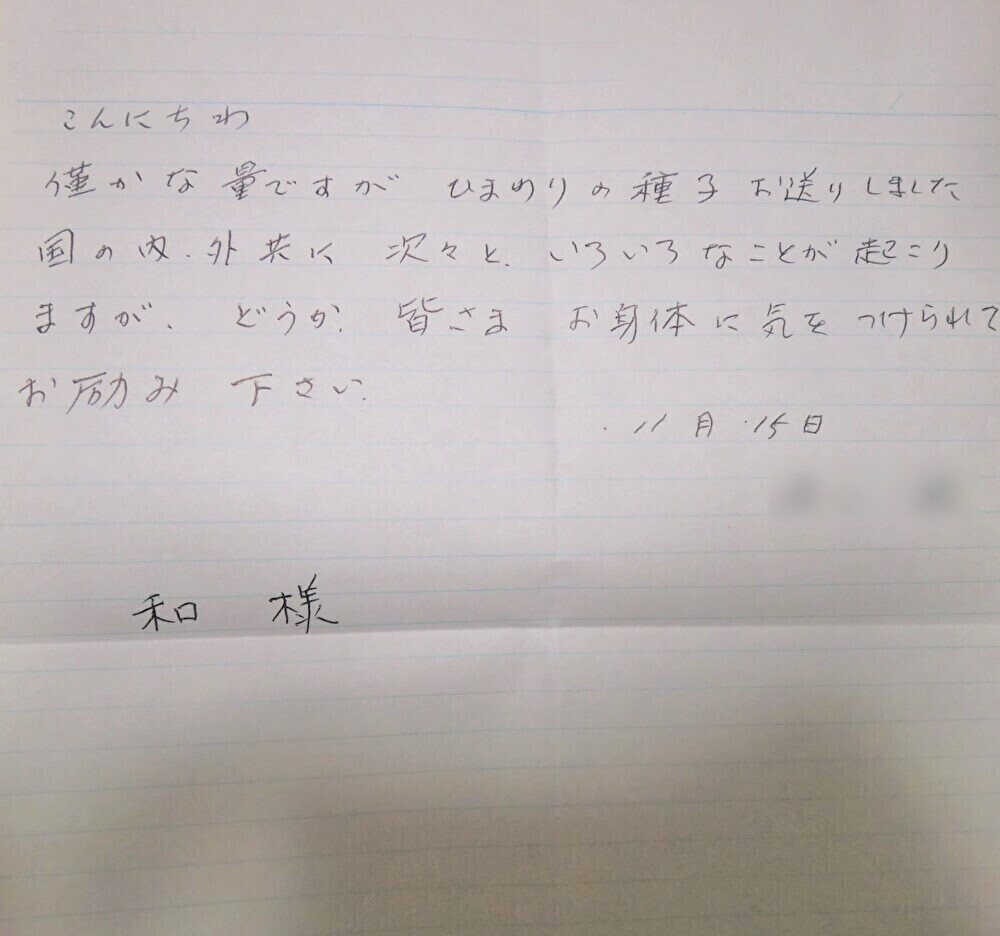 こんにちわ
僅かな量ですが ひまわりの種子お送りしました
国の内、外共に 次々と、いろいろなことが起こり
ますが、どうか、皆さま お身体に気をつけられて
お励み 下さい。
11月15日
和 様